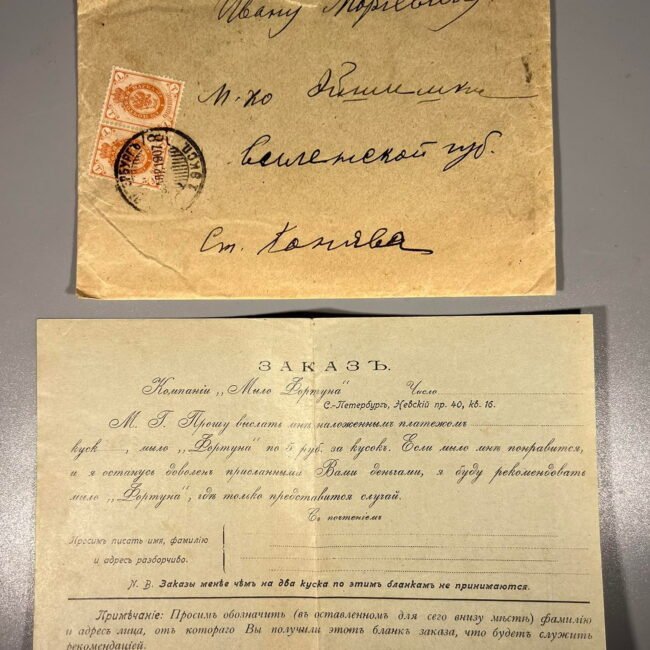 Ивану
М-ко Эйшишки
Виленской губ.
Ст. Конява
1907
ЗАКАЗЪ.
Компаніи „Мыло Фортуна“ Число
С.-Петербургъ, Невскій пр. 40, кв. 16.
М. Г. Прошу выслать мнѣ наложеннымъ платежомъ
куск , мыло „Фортуна“ по 5 руб. за кусокъ. Если мыло мнѣ понравится,
и я останусь доволенъ присланными Вами деньгами, я буду рекомендовать
мыло „Фортуна“, гдѣ только представится случай.
Съ почтеніемъ
Просимъ писать имя, фамилію
и адресъ разборчиво.
N. B. Заказы менѣе чѣмъ на два куска по этимъ бланкамъ не принимаются.
Примѣчаніе: Просимъ обозначить (въ оставленномъ для сего внизу мѣстѣ) фамилію
и адресъ лица, отъ котораго Вы получили этотъ бланкъ заказа, что будетъ служить
рекомендаціей.